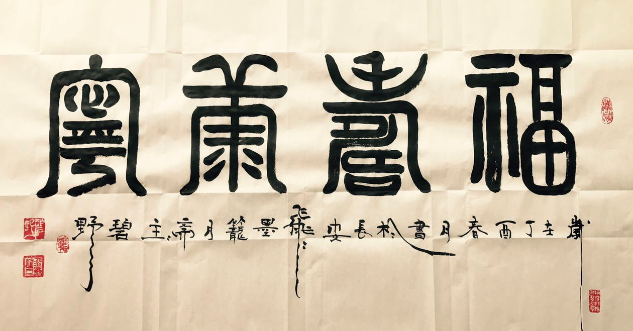 福壽康寧
歲在丁酉春月書於長安飛墨龍月帝主碧野